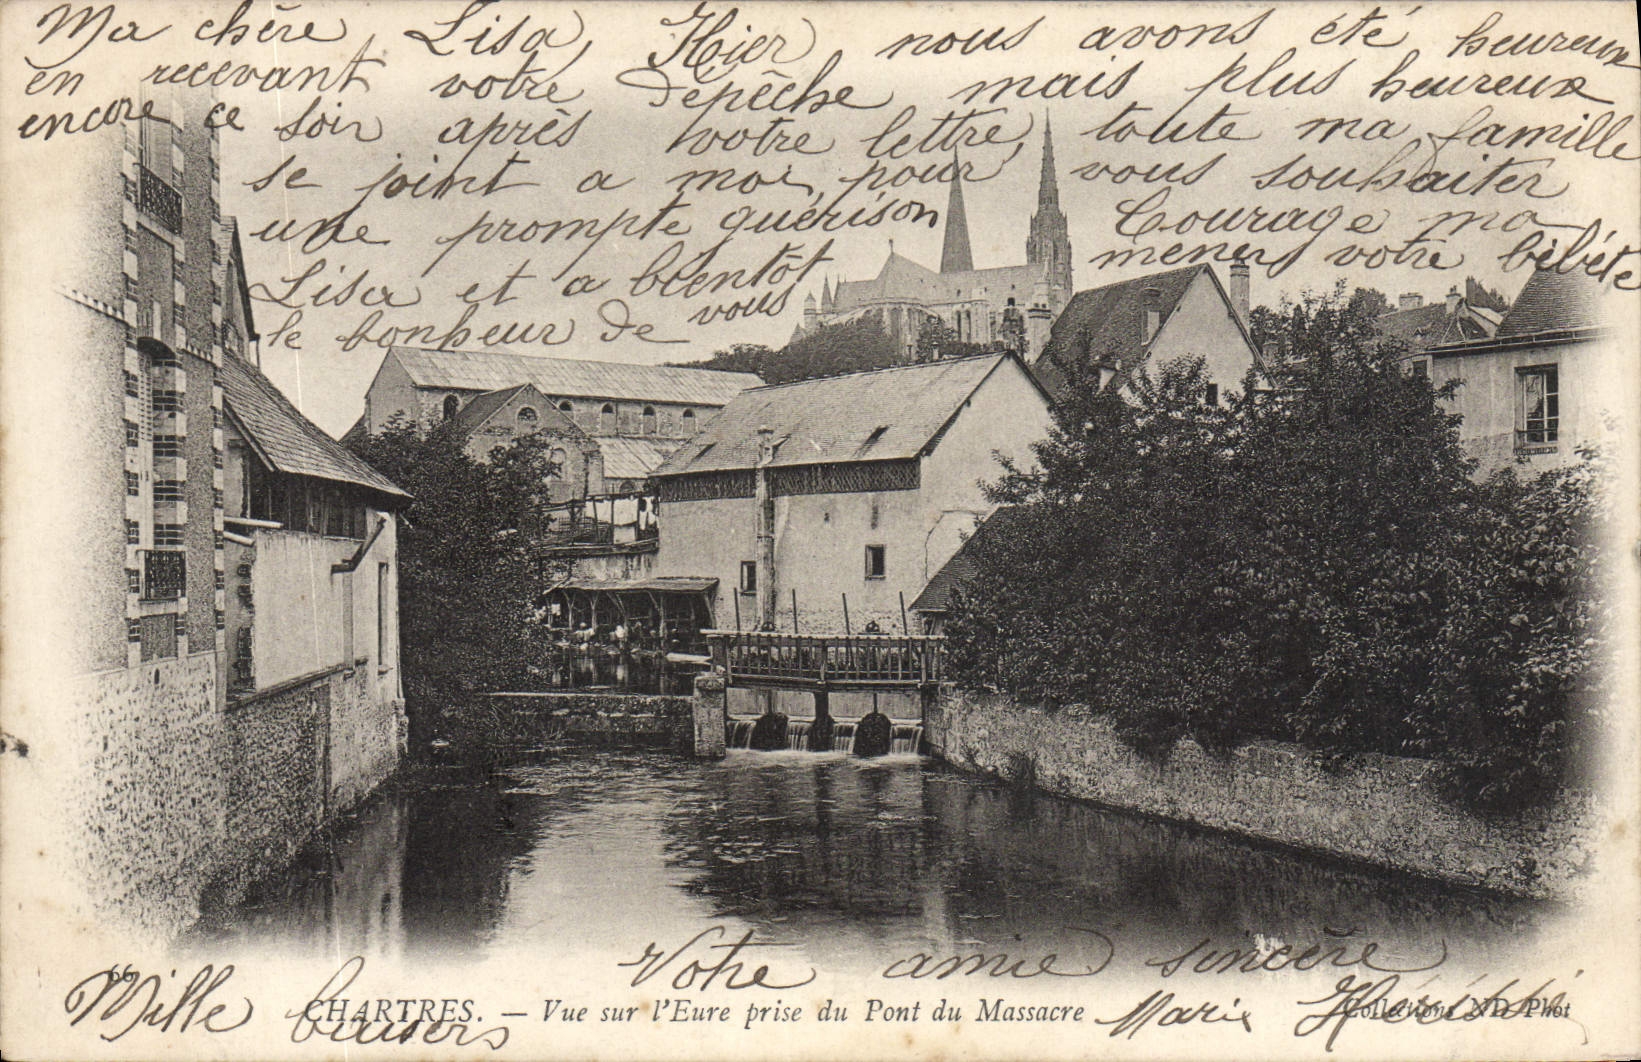 Ma chère Lisa, Hier nous avons été heureux
en recevant votre dépêche mais plus heureux
encore ce soir après votre lettre, toute ma famille
se joint a moi pour vous souhaiter
une prompte guérison Courage ma
Lisa et a bientôt menez votre bébéte
le bonheur de vous
Votre amie sincère
Mille baisers
Marie
66 CHARTRES. — Vue sur l'Eure prise du Pont du Massacre
Collections ND Phot